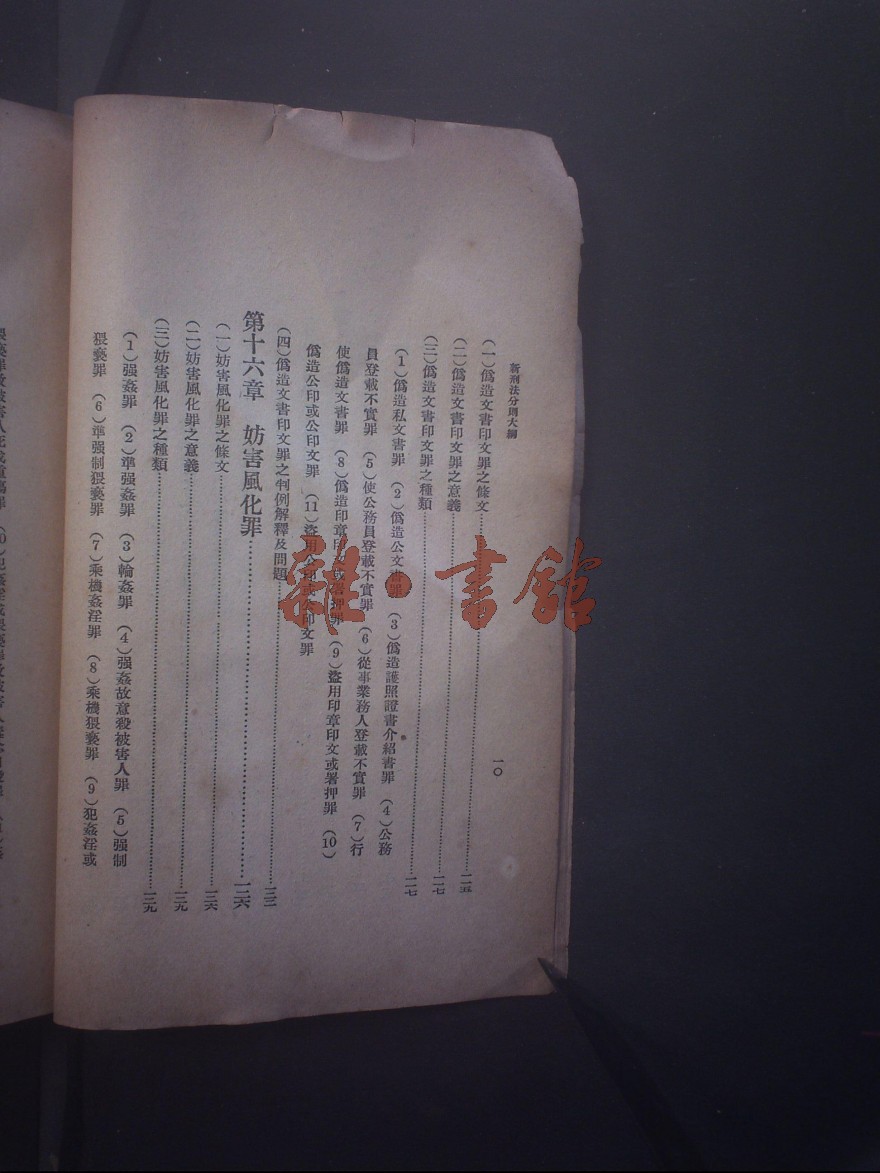 新刑法分則大綱
一〇
(一)僞造文書印文罪之條文……一二五
(二)僞造文書印文罪之意義……一二七
(三)僞造文書印文罪之種類……一二七
(1)僞造私文書罪 (2)僞造公文書罪 (3)僞造護照證書介紹書罪 (4)公務
員登載不實罪 (5)使公務員登載不實罪 (6)從事業務人登載不實罪 (7)行
使僞造文書罪 (8)僞造印章印文或署押罪 (9)盜用印章印文或署押罪 (10)
僞造公印或公印文罪 (11)盜用公印或公印文罪
(四)僞造文書印文罪之判例解釋及問題……
第十六章 妨害風化罪……
(一)妨害風化罪之條文……
(二)妨害風化罪之意義……
(三)妨害風化罪之種類……
(1)强姦罪 (2)準强姦罪 (3)輪姦罪 (4)强姦故意殺被害人罪 (5)强制
猥褻罪 (6)準强制猥褻罪 (7)乘機姦淫罪 (8)乘機猥褻罪 (9)犯姦淫或
雜·書館